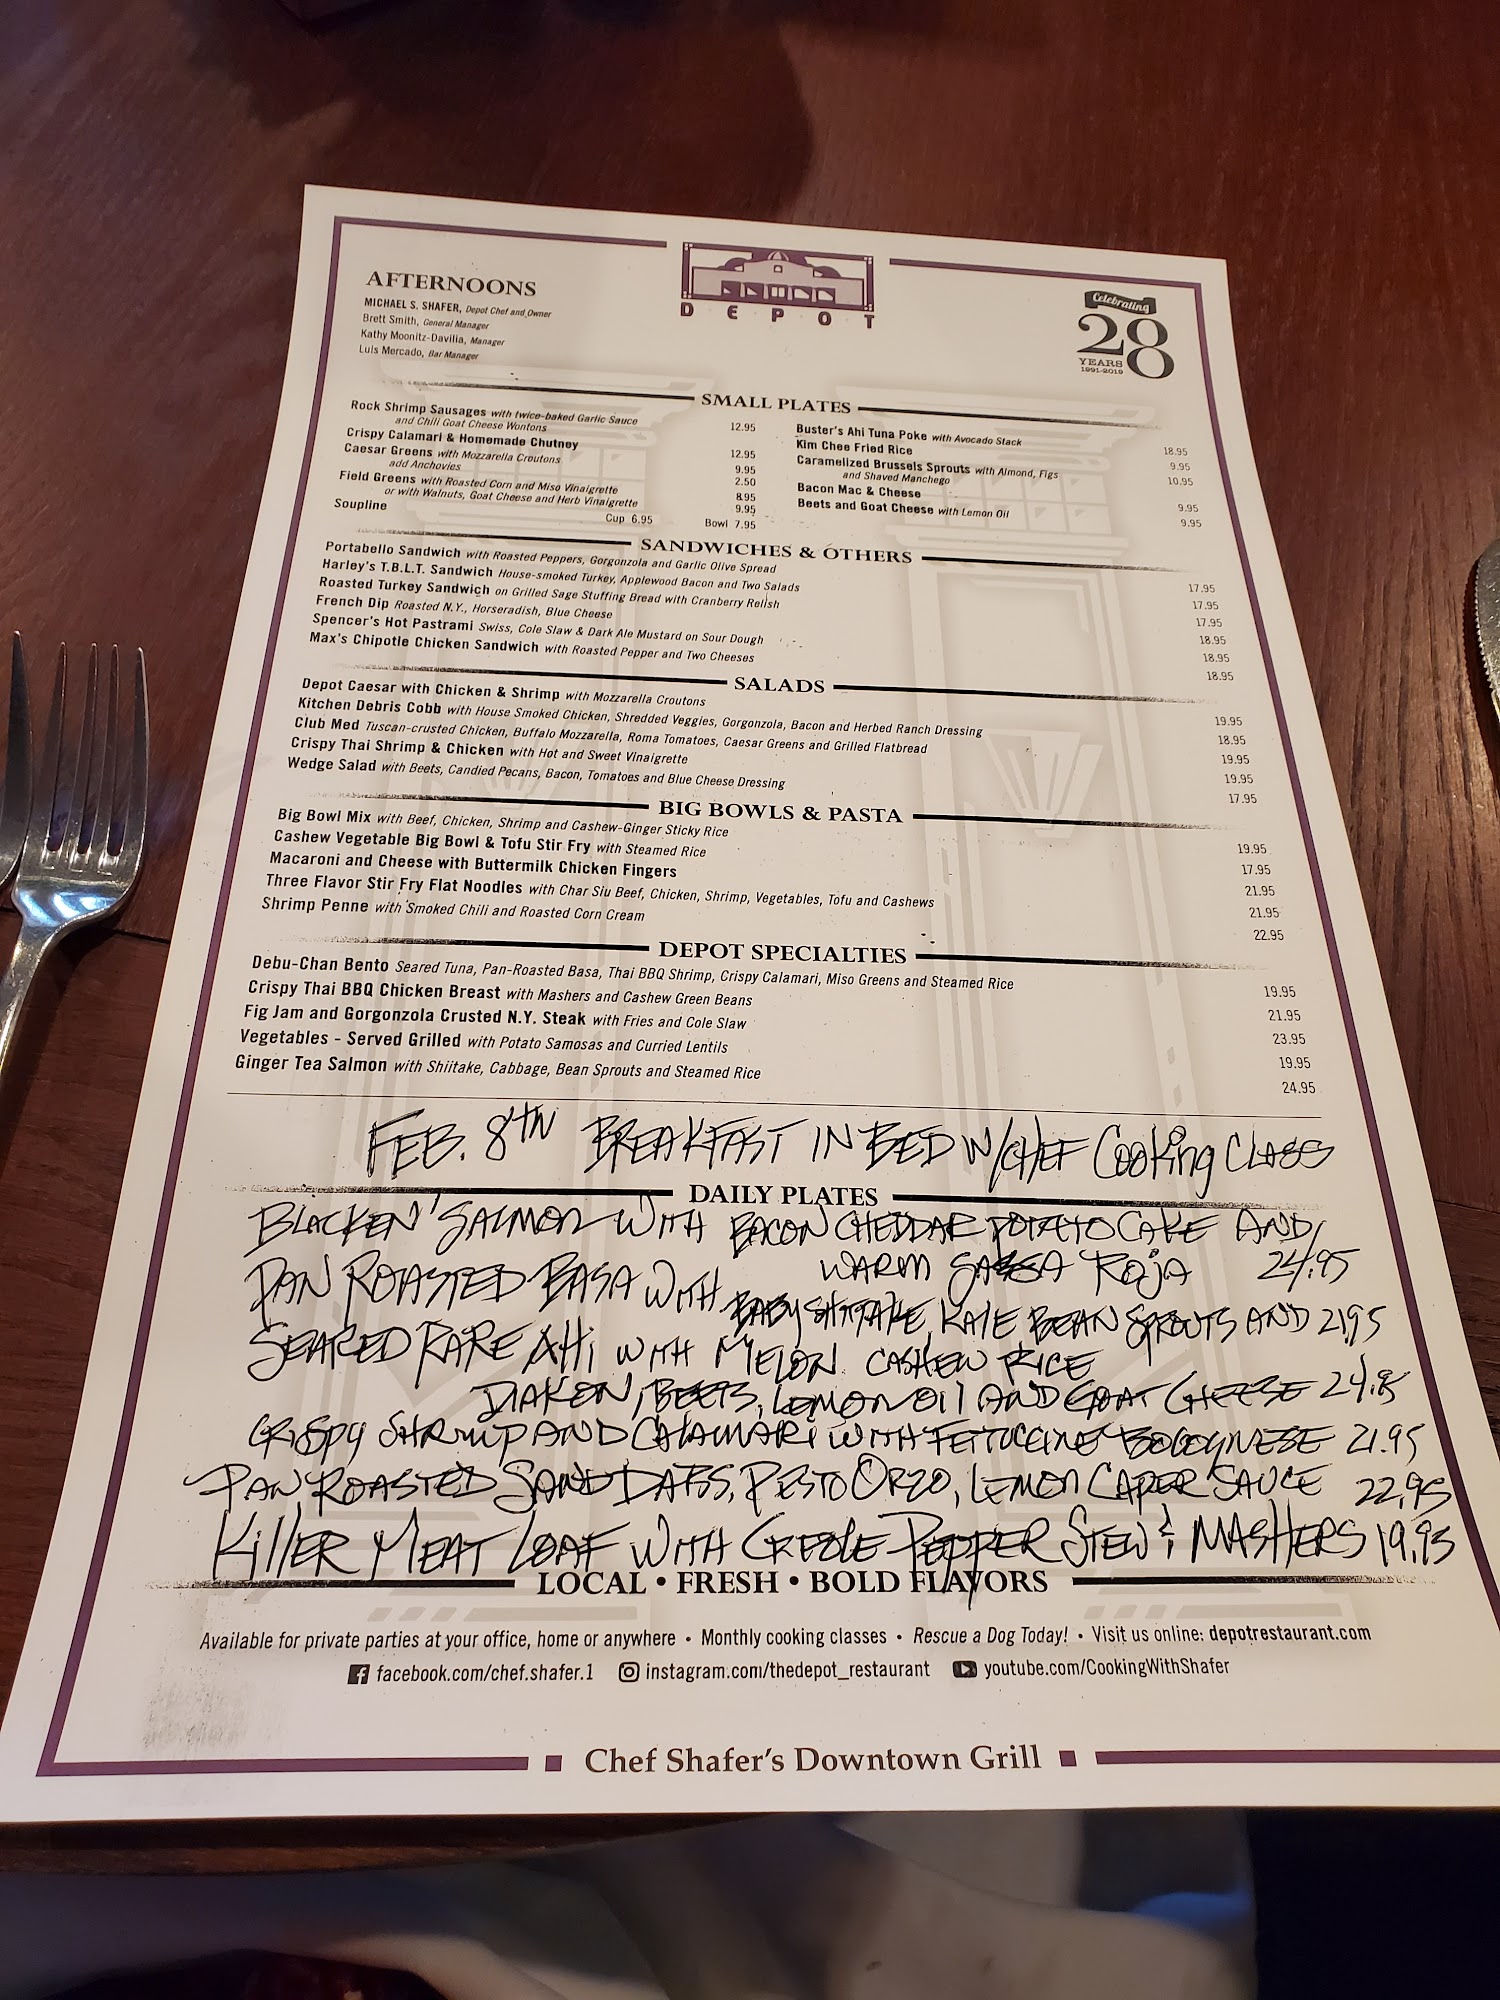 AFTERNOONS
MICHAEL S. SHAFER, Depot Chef and Owner
Brett Smith, General Manager
Kathy Moonitz-Davilia, Manager
Luis Mercado, Bar Manager
DEPOT
Celebrating
28
YEARS
1991-2019
SMALL PLATES
Rock Shrimp Sausages with twice-baked Garlic Sauce
and Chili Goat Cheese Wontons 12.95
Crispy Calamari & Homemade Chutney 12.95
Caesar Greens with Mozzarella Croutons 9.95
add Anchovies 2.50
Field Greens with Roasted Corn and Miso Vinaigrette 8.95
or with Walnuts, Goat Cheese and Herb Vinaigrette 9.95
Soupline Cup 6.95 Bowl 7.95
Buster's Ahi Tuna Poke with Avocado Stack 18.95
Kim Chee Fried Rice 9.95
Caramelized Brussels Sprouts with Almond, Figs 10.95
and Shaved Manchego
Bacon Mac & Cheese 9.95
Beets and Goat Cheese with Lemon Oil 9.95
SANDWICHES & OTHERS
Portabello Sandwich with Roasted Peppers, Gorgonzola and Garlic Olive Spread 17.95
Harley's T.B.L.T. Sandwich House-smoked Turkey, Applewood Bacon and Two Salads 17.95
Roasted Turkey Sandwich on Grilled Sage Stuffing Bread with Cranberry Relish 17.95
French Dip Roasted N.Y., Horseradish, Blue Cheese 18.95
Spencer's Hot Pastrami Swiss, Cole Slaw & Dark Ale Mustard on Sour Dough 18.95
Max's Chipotle Chicken Sandwich with Roasted Pepper and Two Cheeses 18.95
SALADS
Depot Caesar with Chicken & Shrimp with Mozzarella Croutons 19.95
Kitchen Debris Cobb with House Smoked Chicken, Shredded Veggies, Gorgonzola, Bacon and Herbed Ranch Dressing 18.95
Club Med Tuscan-crusted Chicken, Buffalo Mozzarella, Roma Tomatoes, Caesar Greens and Grilled Flatbread 19.95
Crispy Thai Shrimp & Chicken with Hot and Sweet Vinaigrette 19.95
Wedge Salad with Beets, Candied Pecans, Bacon, Tomatoes and Blue Cheese Dressing 17.95
BIG BOWLS & PASTA
Big Bowl Mix with Beef, Chicken, Shrimp and Cashew-Ginger Sticky Rice 19.95
Cashew Vegetable Big Bowl & Tofu Stir Fry with Steamed Rice 17.95
Macaroni and Cheese with Buttermilk Chicken Fingers 21.95
Three Flavor Stir Fry Flat Noodles with Char Siu Beef, Chicken, Shrimp, Vegetables, Tofu and Cashews 21.95
Shrimp Penne with Smoked Chili and Roasted Corn Cream 22.95
DEPOT SPECIALTIES
Debu-Chan Bento Seared Tuna, Pan-Roasted Basa, Thai BBQ Shrimp, Crispy Calamari, Miso Greens and Steamed Rice 19.95
Crispy Thai BBQ Chicken Breast with Mashers and Cashew Green Beans 21.95
Fig Jam and Gorgonzola Crusted N.Y. Steak with Fries and Cole Slaw 23.95
Vegetables - Served Grilled with Potato Samosas and Curried Lentils 19.95
Ginger Tea Salmon with Shiitake, Cabbage, Bean Sprouts and Steamed Rice 24.95
FEB. 8TH BREAKFAST IN BED W/CHEF Cooking CLASS
DAILY PLATES
BLACKEN' SALMON WITH BACON CHEDDAR POTATO CAKE AND
WARM SALSA ROJA 24.95
PAN ROASTED BASA WITH BABY SHITAKE, KALE BEAN SPROUTS AND 21.95
CASHEW RICE
SEARED RARE AHI WITH MELON
DIAKON, BEETS, LEMON OIL AND GOAT CHEESE 24.95
CRISPY SHRIMP AND CALAMARI WITH FETTUCCINE BOLOGNESE 21.95
PAN ROASTED SAND DABS, PESTO ORZO, LEMON CAPER SAUCE 22.95
KILLER MEAT LOAF WITH CREOLE PEPPER STEW & MASHERS 19.95
LOCAL • FRESH • BOLD FLAVORS
Available for private parties at your office, home or anywhere • Monthly cooking classes • Rescue a Dog Today! • Visit us online: depotrestaurant.com
facebook.com/chef.shafer.1 instagram.com/thedepot_restaurant youtube.com/CookingWithShafer
Chef Shafer's Downtown Grill